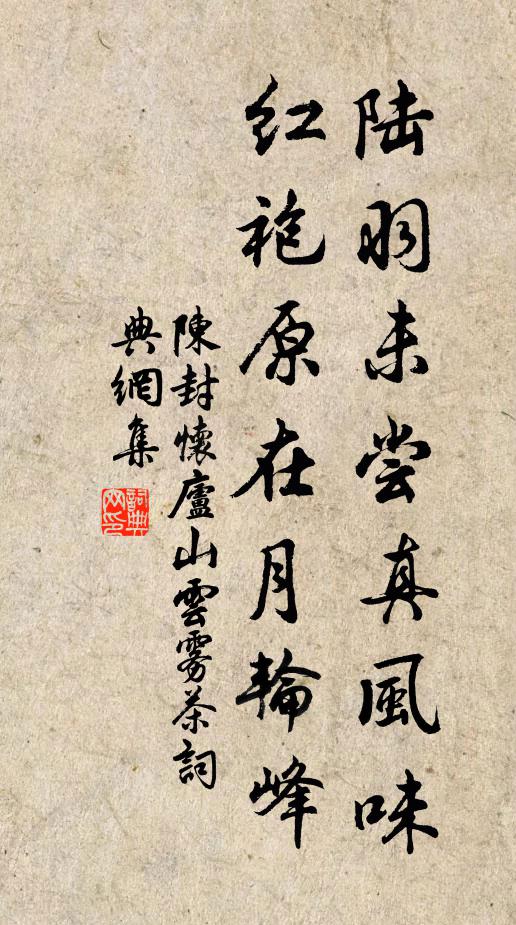 陆羽未尝真風味
红袍原在月輪峰
陳封懷廬山雲雾茶詞
典網集
詞典网印